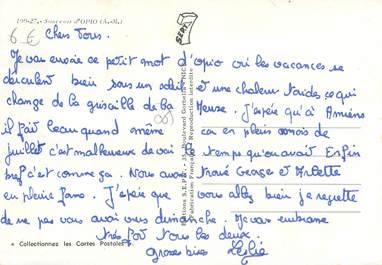 199-27. - Souvenir d'OPIO (A.-M.)
6 €
SEPT
Chers Tous.
Je vous envoie ce petit mot d'opio où les vacances se
déroulent bien sous un soleil et une chaleur torides, ce qui
change de la grisaille de la Meuse. J'espère qu'à Amiens
il fait beau quand même car en plein mois de
juillet c'est malheureux de voir le temps qu'on avait Enfin
bref c'est comme ça. Nous avons trouvé George et Arlette
en pleine forme. J'espère que vous allez bien je regrette
de ne pas vous avoir vus dimanche. Je vous embrasse
très fort tous les deux.
Grosses bises
Editions S.E.P.T., 35, Boulevard Gorbella - NICE
Fabrication Française - Reproduction interdite
• Collectionnez les Cartes Postales •